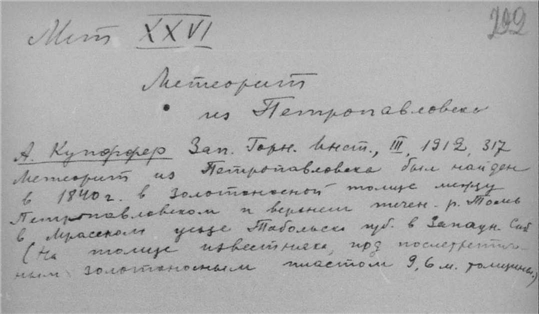 Мет XXVI
202
Метеорит
из Петропавловска
А. Купффер Зап. Горн. Инст., III, 1912, 317
Метеорит из Петропавловска был найден
в 1840 г. в золотоносной толще между
Петропавловском и верхнем течен. р. Томь
в Мрасском уезде Тобольск. губ. в Западн. Сиб
(На толще известняка, под послетретич-
ным золотоносным пластом 9,6 м. толщины.)